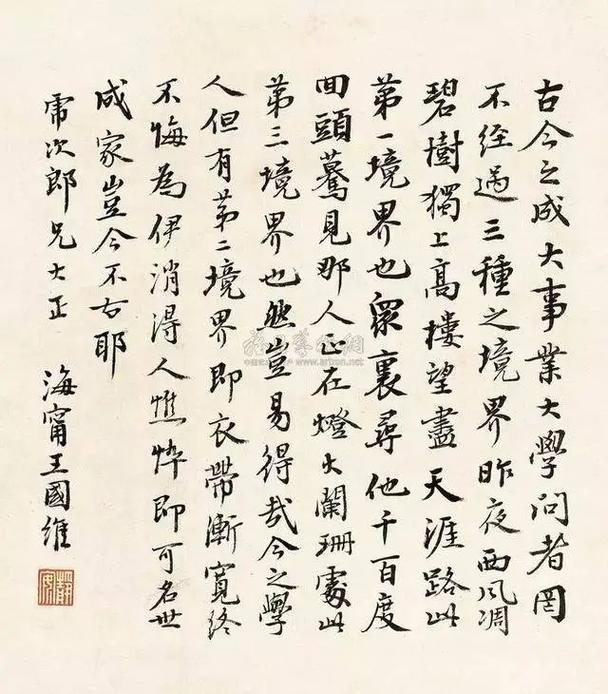 古今之成大事業大學問者罔
不經過三種之境界昨夜西風凋
碧樹獨上高樓望盡天涯路此
第一境界也眾裏尋他千百度
回頭驀見那人正在燈火闌珊處此
第三境界也然豈易得哉今之學
人但有第二境界即衣帶漸寬終
不悔為伊消得人憔悴即可名世
成家豈今不古耶
次郎兄大正 海甯王國維
靜安
www.artron.net